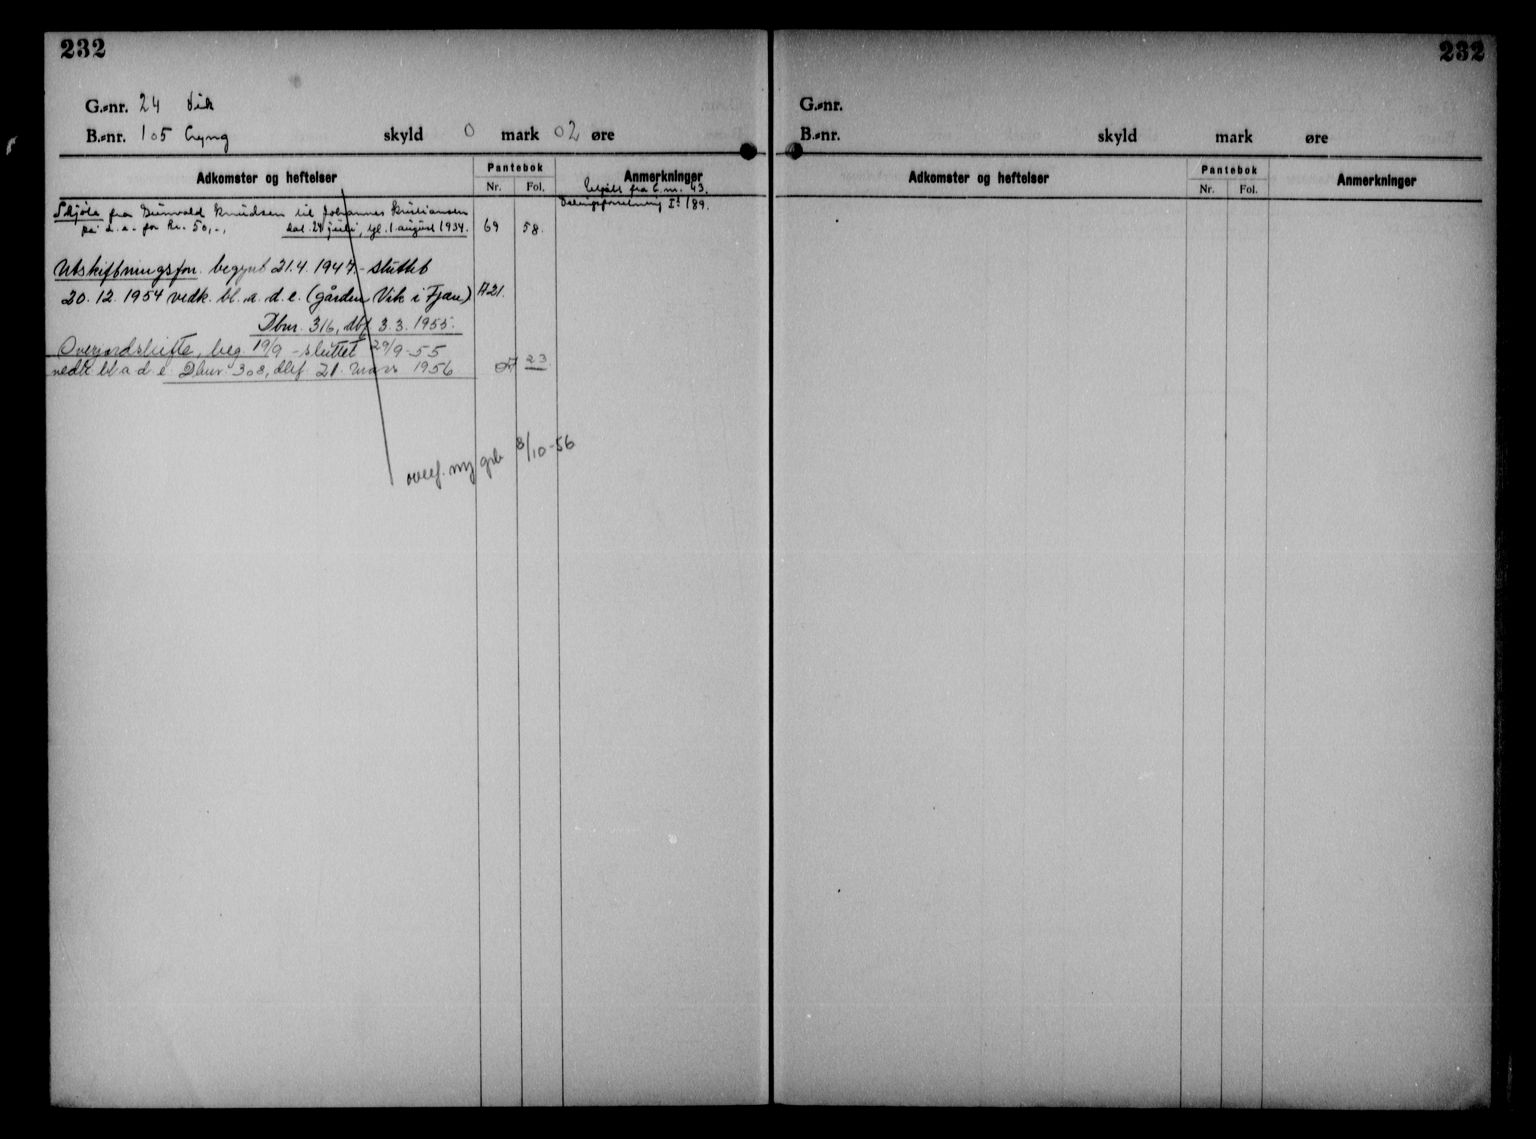 232
G.-nr. 24 Vik
B.-nr. 105 Lyng skyld 0 mark 02 øre
Adkomster og heftelser Pantebok Anmerkninger
Nr. Fol.
Utskilt fra b.nr. 43.
Skjöte fra Gunvald Knudsen til Johannes Kristiansen
på d.e. for kr. 50,-, dat. 24 juli, tgl. 1. august 1934. 69 58.
Delingsforretning I 189.
Utskiftningsforr. begynt 21.4.1947 - sluttet
20.12.1954 vedk. bl.a. d.e. (gården Vik i Fjære) A21.
Dbnr. 316, dbf 3.3.1955.
Overjordskifte, beg. 19/9 - sluttet 29/9-55
vedk. bl a d e. Dbnr. 308, dbf. 21. mars 1956 A 23
overf. ny grb 8/10-56
232
G.-nr.
B.-nr. skyld mark øre
Adkomster og heftelser Pantebok Anmerkninger
Nr. Fol.